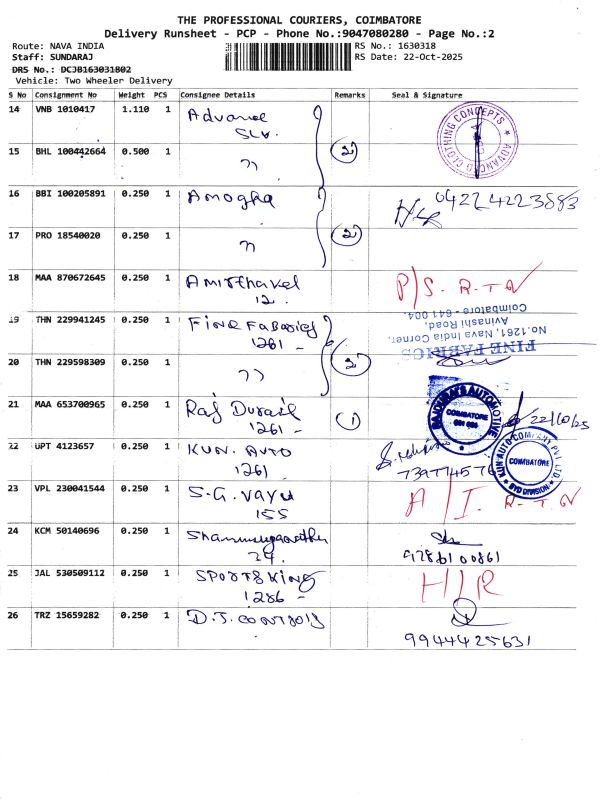 THE PROFESSIONAL COURIERS, COIMBATORE
Delivery Runsheet - PCP - Phone No.:9047080280 - Page No.:2
Route: NAVA INDIA RS No.: 1630318
Staff: SUNDARAJ RS Date: 22-Oct-2025
DRS No.: DCJB163031802
Vehicle: Two Wheeler Delivery
S No Consignment No Weight PCS Consignee Details Remarks Seal & Signature
14 VNB 1010417 1.110 1 Advance
SLV. ADVANCED CLOTHING CONCEPTS
15 BHL 100442664 0.500 1 " 2
16 BBI 100205891 0.250 1 Amogha 0422 4223883
17 PRO 18540020 0.250 1 " 2
18 MAA 870672645 0.250 1 Amirthavel P/S. R-T-O
12.
19 THN 229941245 0.250 1 Fine Fabrics
1261 -
FINE FABRICS
No.1261, Nava India Corner,
Avinashi Road,
Coimbatore - 641 004.
20 THN 229598309 0.250 1 " 2
21 MAA 653700965 0.250 1 Raj Durai's 1 22/10/25
1261 -
RAJDURAI'S AUTOMOTIVE
COIMBATORE
22 UPT 4123657 0.250 1 KUN. AUTO
1261
KUN AUTO COMPANY PVT LTD
COIMBATORE
BYD DIVISION
23 VPL 230041544 0.250 1 S.G. Vayu A/I. R-T-O
155
24 KCM 50140696 0.250 1
24. 9786100861
25 JAL 530509112 0.250 1 SPORTS KING H/R
1286 -
26 TRZ 15659282 0.250 1 D.J. controls
9944425631